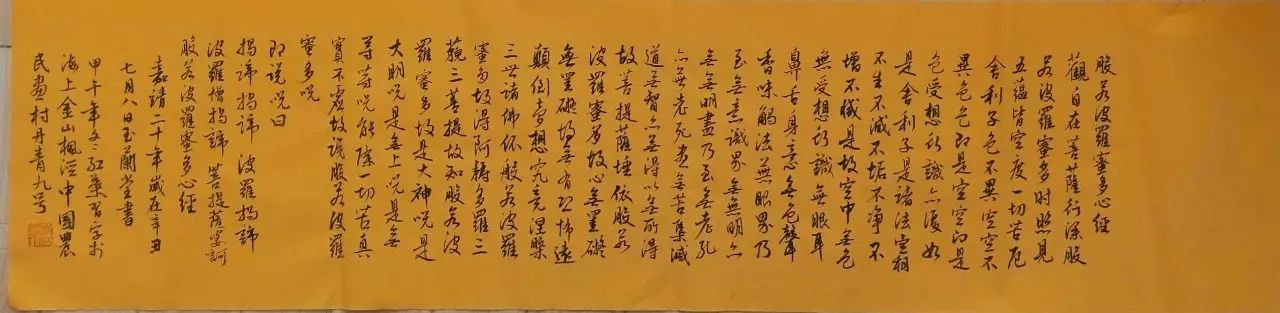 般若波羅蜜多心經
觀自在菩薩行深般
若波羅蜜多時照見
五蘊皆空度一切苦厄
舍利子色不異空空不
異色色即是空空即是
色受想行識亦復如
是舍利子是諸法空相
不生不滅不垢不凈不
增不減是故空中無色
無受想行識無眼耳
鼻舌身意無色聲
香味觸法無眼界乃
至無意識界無無明亦
無無明盡乃至無老死
亦無老死盡無苦集滅
道無智亦無得以無所得
故菩提薩埵依般若
波羅蜜多故心無罣礙
無罣礙故無有恐怖遠
顛倒夢想究竟涅槃
三世諸佛依般若波羅
蜜多故得阿耨多羅三
藐三菩提故知般若波
羅蜜多故是大神咒是
大明咒是無上咒是無
等等咒能除一切苦真
實不虛故說般若波羅
蜜多咒
即說咒曰
揭諦揭諦 波羅揭諦
波羅增揭諦 菩提薩婆訶
般若波羅蜜多心經
嘉靖二十年歲在辛丑
七月八日玉蘭堂書
甲午年冬紅葉習字於
海上金山楓涇中國農
民畫村丹青九號